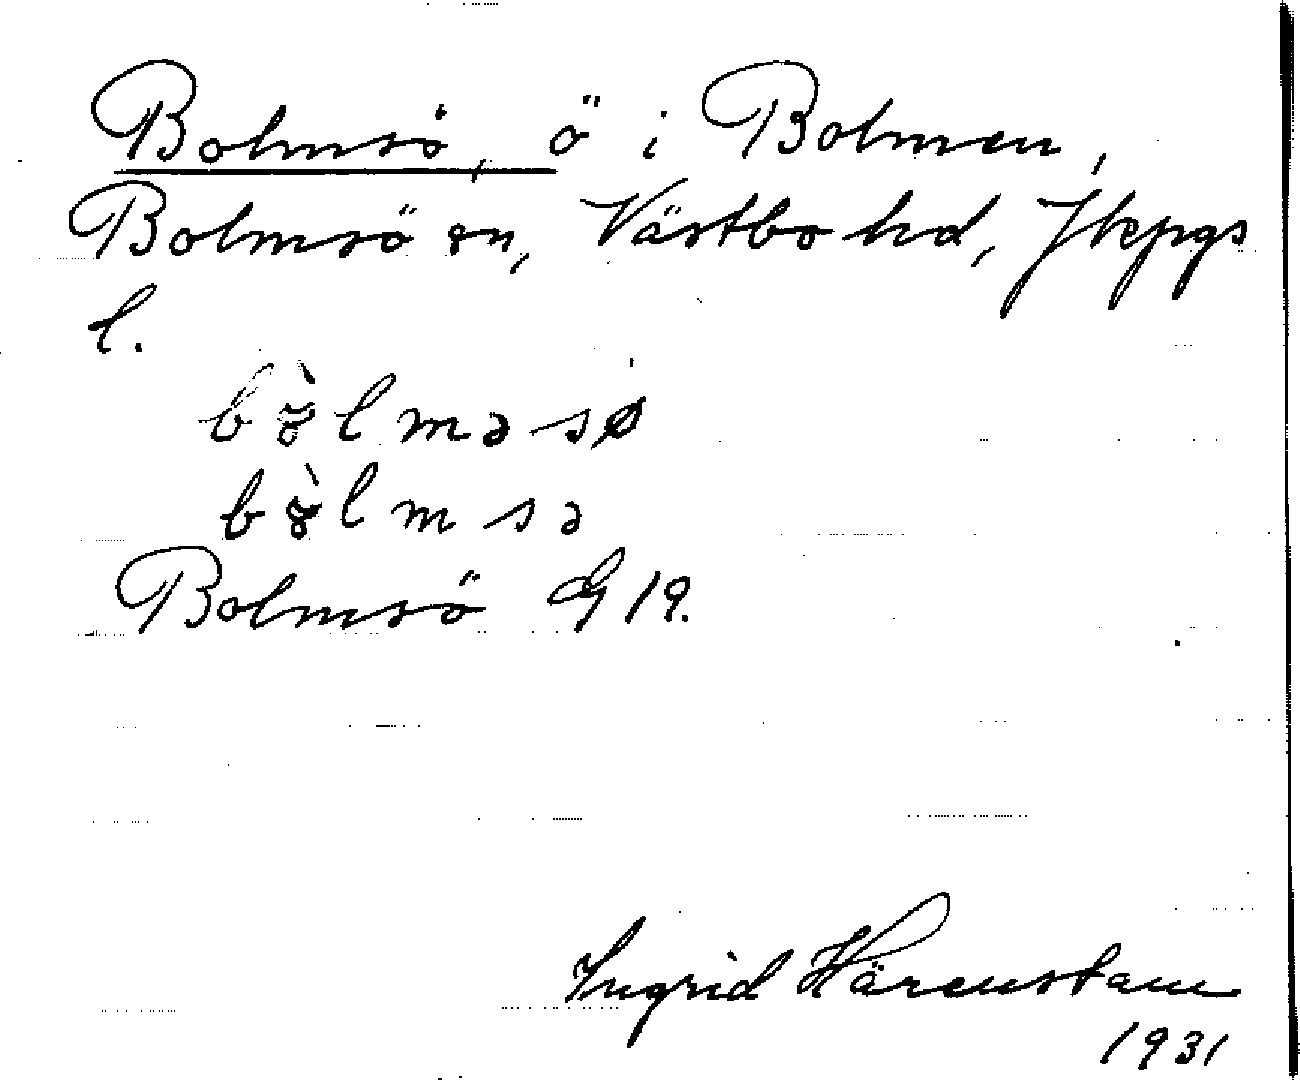 Bolmsö, ö i Bolmen,
Bolmsö sn, Västbo hd, Jkpgs
l.
bòlməsø
bòlmsə
Bolmsö G 19.
Ingrid Härenstam
1931